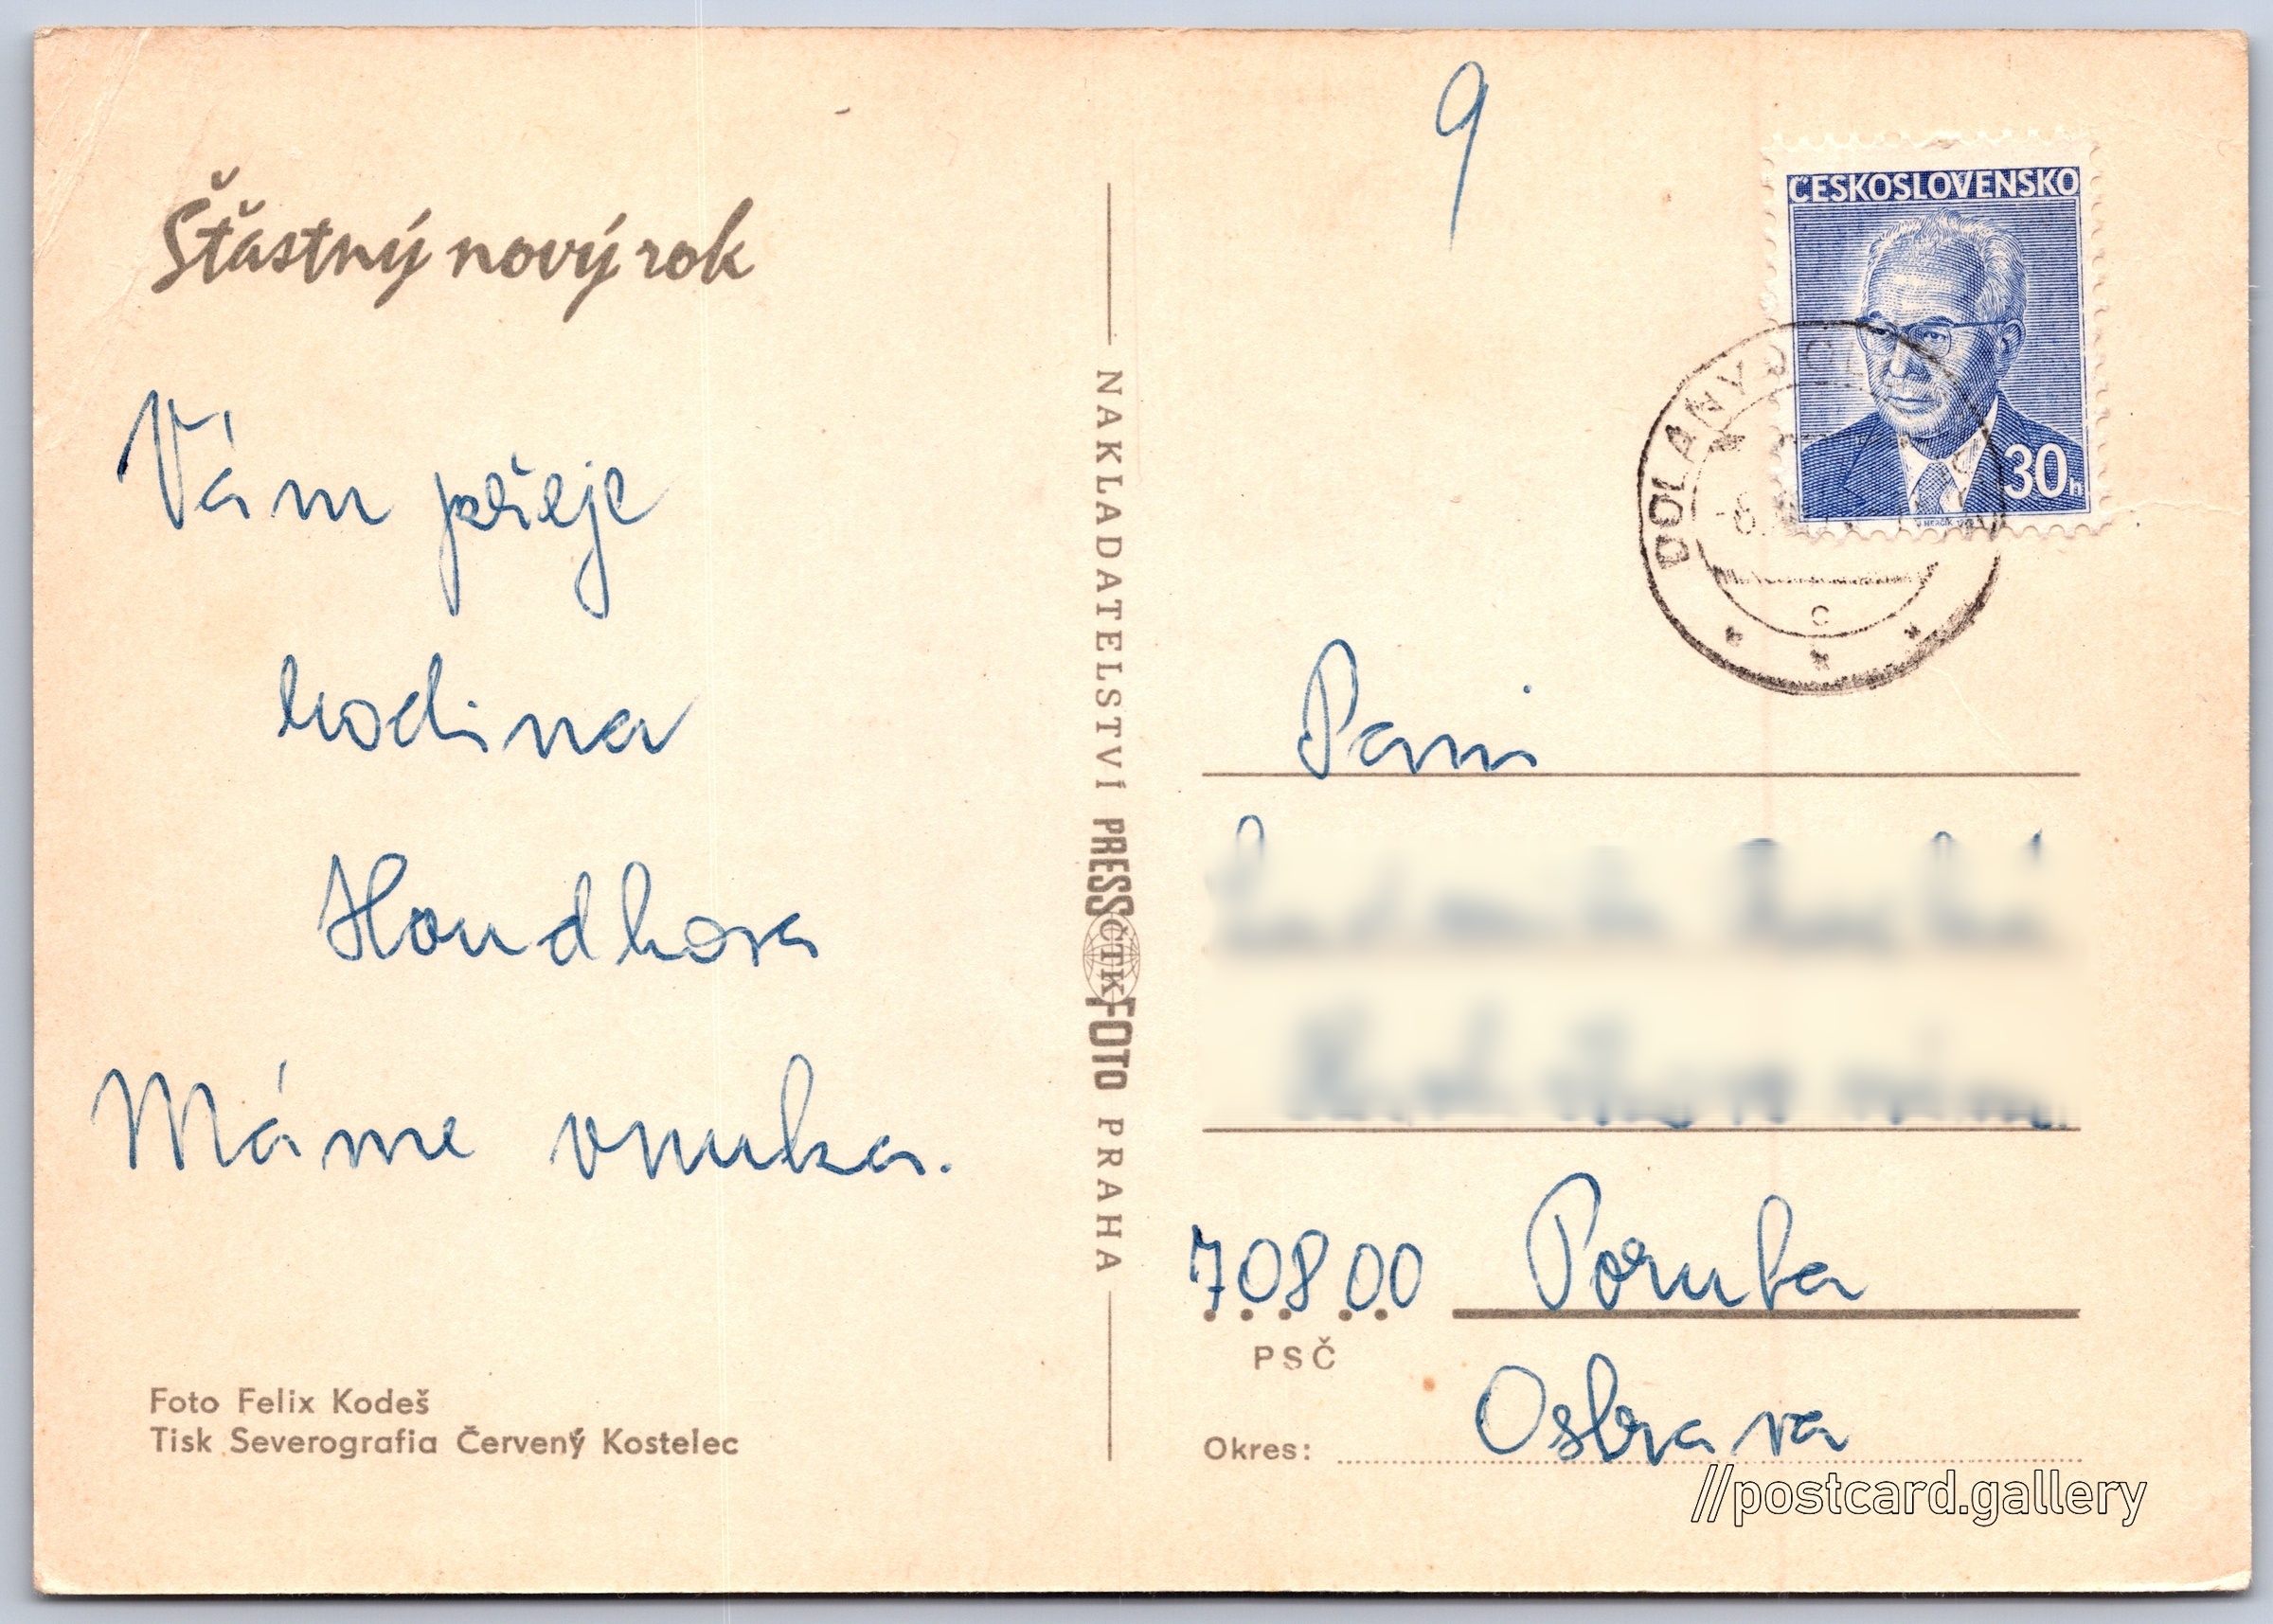 Šťastný nový rok
Vám přeje
rodina
Houdkova
Máme vnuka.
Foto Felix Kodeš
Tisk Severografia Červený Kostelec
NAKLADATELSTVÍ PRESSFOTO PRAHA
ČTK
9
ČESKOSLOVENSKO
30h
DOLANY
c
Paní
70800 Poruba
PSČ
Ostrava
Okres:
//postcard.gallery